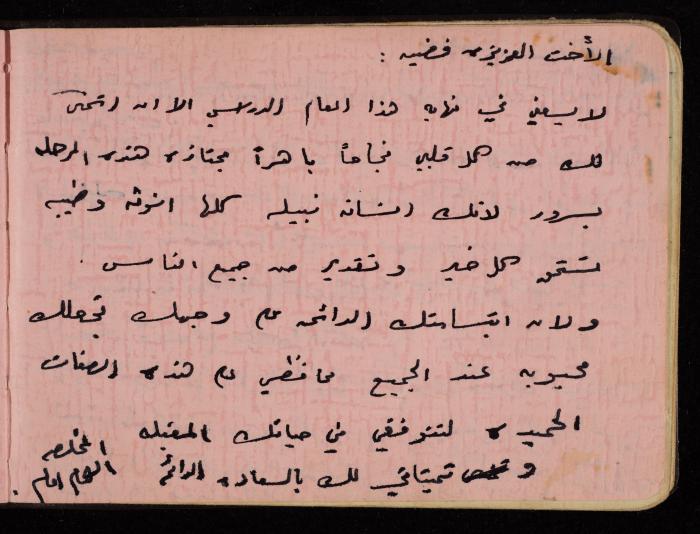 الأخت العزيزه فضيه :
لا يسعني في نهايه هذا العام الدراسي الا ان اتمنى
لك من كل قلبي نجاحاً باهراً مجتازه هذه المرحله
بسرور لانك انسانه نبيله كلها انوثه وطيبه
تستحق كل خير وتقدير من جميع الناس .
ولان ابتسامتك الدائمه على وجهك تجعلك
محبوبه عند الجميع حافظي على هذه الصفات
الحميده لتتوفقي في حياتك المقبله
و تمنياتي لك بالسعاده الدائمه
المخلصه
الهام